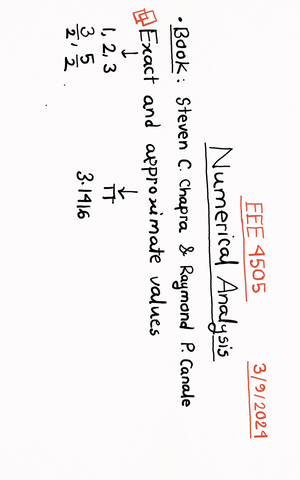 EEE 4505 3/9/2024
Numerical Analysis
• Book: Steven C. Chapra & Raymond P. Canale
Exact and approximate values
↓ ↓
1, 2, 3 π
3/2, 5/2 3.1416